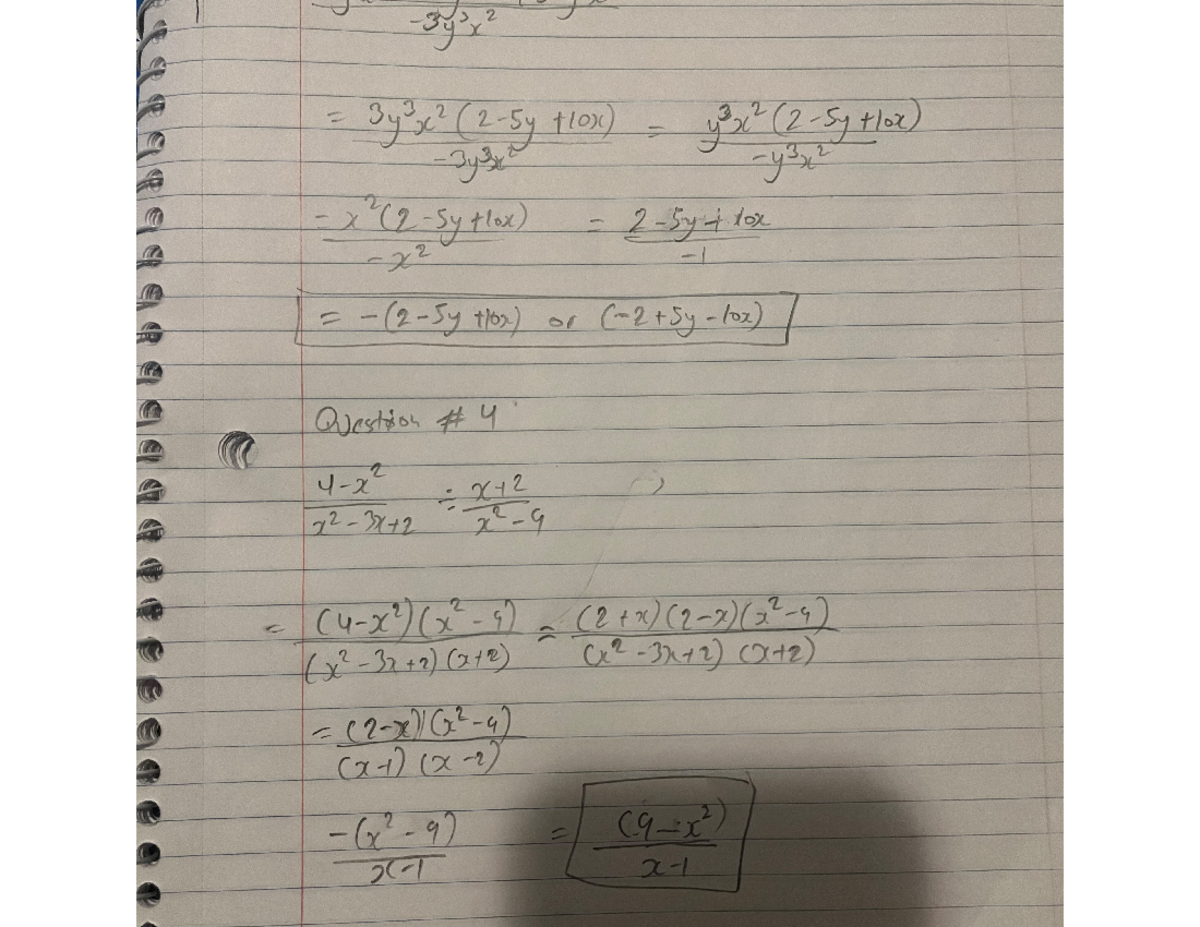 -3y³x²
= 3y³x²(2-5y+10x) / -3y³x² = y³x²(2-5y+10x) / -y³x²
= x²(2-5y+10x) / -x² = 2-5y+10x / -1
= -(2-5y+10x) or (-2+5y-10x)
Question # 4
4-x² / x²-3x+2 ÷ x+2 / x²-9
= (4-x²)(x²-9) / (x²-3x+2)(x+2) = (2+x)(2-x)(x²-9) / (x²-3x+2)(x+2)
= (2-x)(x²-9) / (x-1)(x-2)
-(x²-9) / x-1 = (9-x²) / x-1